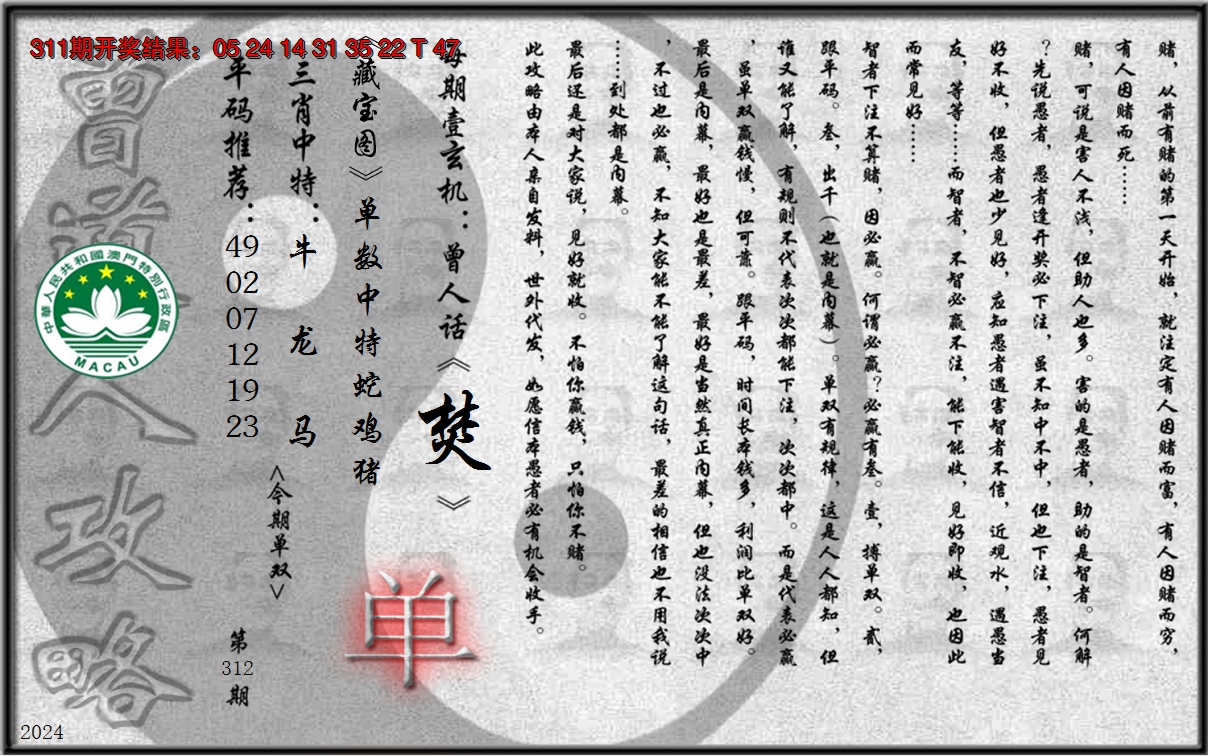 311期开奖结果：05 24 14 31 35 22 T 47
赌，从前有赌的第一天开始，就注定有人因赌而富，有人因赌而穷，
有人因赌而死……
赌，可说是害人不浅，但助人也多。害的是愚者，助的是智者。何解
？先说愚者，愚者逢开奖必下注，虽不知中不中，但也下注，愚者见
好不收，但愚者也少见好，应知愚者遇害智者不信，近观水，遇愚当
友，等等……而智者，不智必赢不注，能下能收，见好即收，也因此
而常见好……
智者下注不算赌，因必赢。何谓必赢？必赢有叁。壹，搏单双。贰，
跟平码。叁，出千（也就是内幕）。单双有规律，这是人人都知，但
谁又能了解，有规则不代表次次都能下注，次次都中。而是代表必赢
，虽单双赢钱慢，但可靠。跟平码，时间长本钱多，利润比单双好。
最后是内幕，最好也是最差，最好是当然真正内幕，但也没法次次中
，不过也必赢，不知大家能不能了解这句话，最差的相信也不用我说
……到处都是内幕。
最后还是对大家说，见好就收。不怕你赢钱，只怕你不赌。
此攻略由本人亲自发料，世外代发，如愿信本愚者必有机会收手。
每期壹玄机：曾人话《楚》
《藏宝图》单数中特蛇鸡猪
单
三肖中特：牛 龙 马
<今期单双>
平码推荐：49 02 07 12 19 23
第312期
曾道人攻略
中華人民共和國澳門特別行政區
MACAU
2024